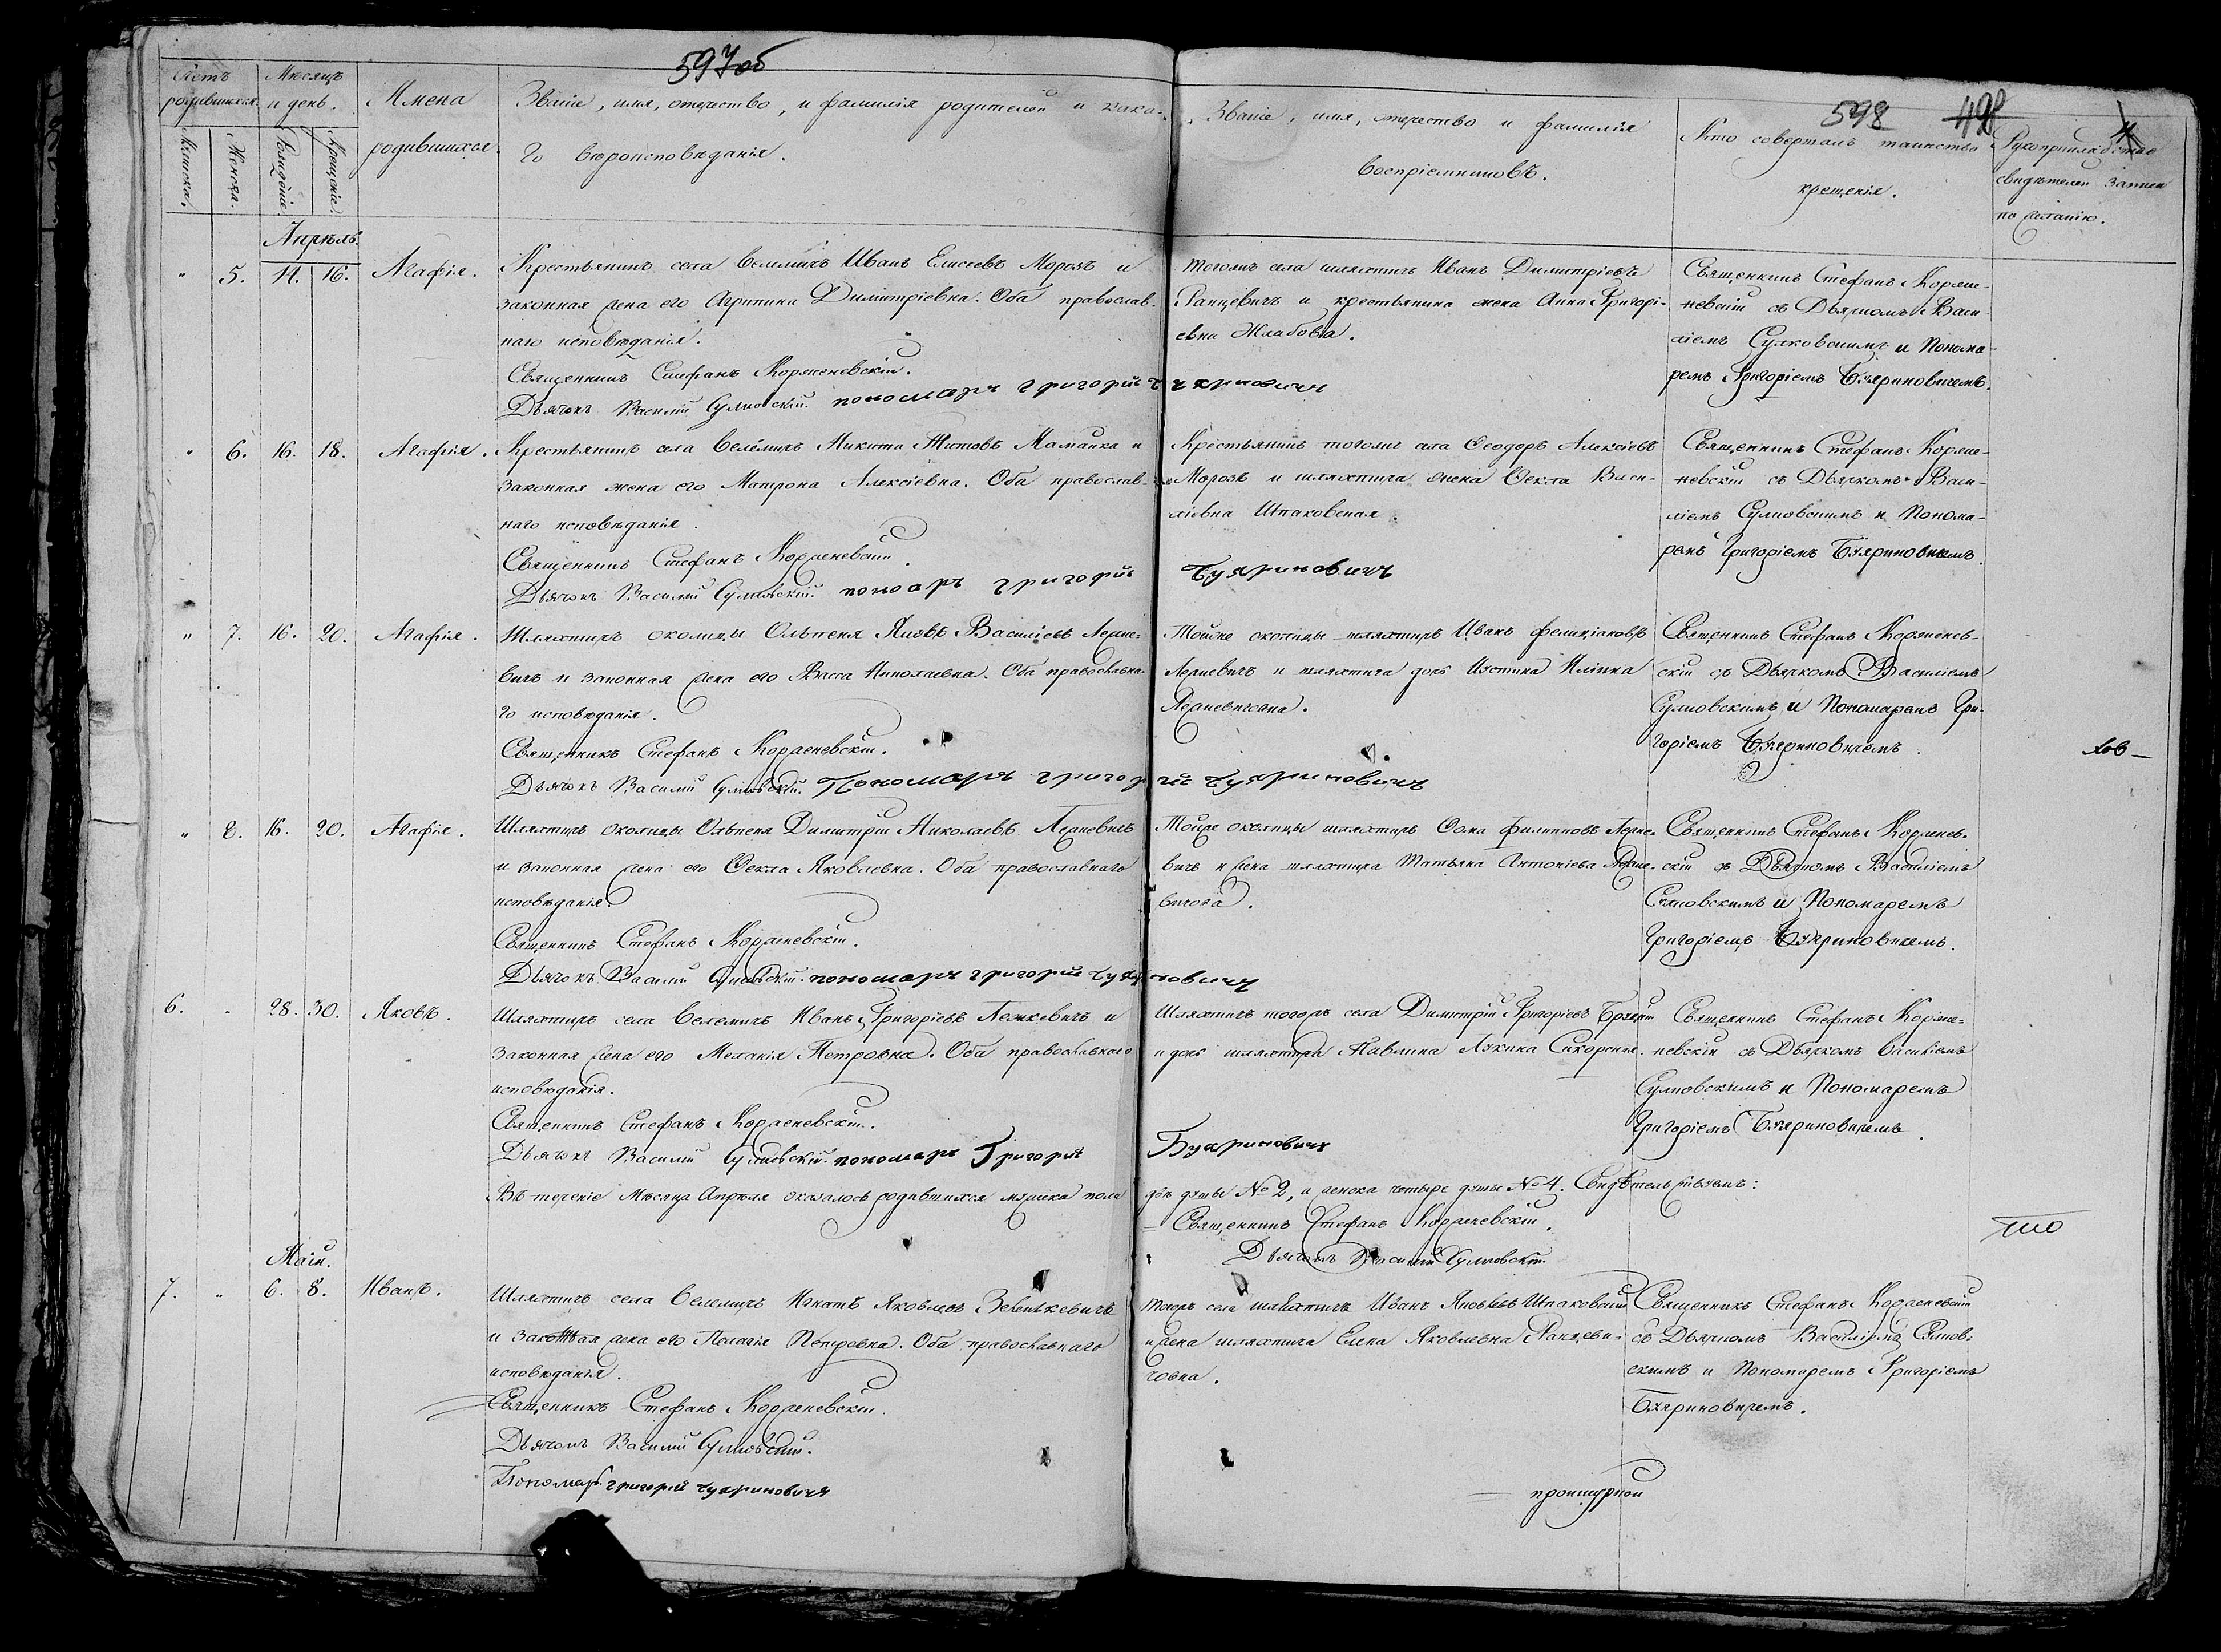 597об
598 498
Счетъ родившихся.
Мѣсяцъ и день.
Имена родившихся.
Званіе, имя, отечество, и фамилія родителей и кака-
го вѣроисповѣданія.
Званіе, имя, отечество и фамилія
воспріемниковъ.
Кто совершалъ таинство
крещенія.
Рукоприкладство
свидѣтелей записи
по желанію.
Мужска. Женска. Рожденіе. Крещеніе.
Апрѣль.
" 5. 14. 16. Агафія.
Крестьянинъ села Велемичъ Иванъ Елисеевъ Морозъ и
законная жена его Агрипина Димитріевна. Оба православ-
наго исповѣданія.
Священникъ Стефанъ Корженевскій.
Дьячокъ Василій Сулковскій. пономаръ григорий
тогожъ села шляхтичъ Иванъ Димитріевъ
Ранцевичъ и крестьянина жена Анна Григорі-
евна Жлабова.
Священникъ Стефанъ Корже-
невскій съ Дьячкомъ Васи-
ліемъ Сулковскимъ и Понома-
ремъ Григоріемъ Буяриновичемъ.
" 6. 16. 18. Агафія.
Крестьянинъ села Велемичъ Микита Титовъ Маманка и
законная жена его Матрона Алексіевна. Оба православ-
наго исповѣданія.
Священникъ Стефанъ Корженевскій.
Дьячокъ Василій Сулковскій. поноаръ григорий Буяриновичъ
Крестьянинъ тогожъ села Ѳеодоръ Алексіевъ
Морозъ и шляхтича жена Ѳекла Васи-
ліевна Шпаковская.
Священникъ Стефанъ Корже-
невскій съ Дьячкомъ Васи-
ліемъ Сулковскимъ и Понома-
ремъ Григоріемъ Буяриновичемъ.
" 7. 16. 20. Агафія.
Шляхтичъ околицы Ольпеня Яковъ Василіевъ
вичъ и законная жена его Васса Николаевна. Оба православна-
го исповѣданія.
Священникъ Стефанъ Корженевскій.
Дьячокъ Василій Сулковскій. Пономаръ григорий Буяриновичъ
Тойже околицы шляхтичъ Иванъ
и шляхтича дочь Іустина
Священникъ Стефанъ Корженев-
скій съ Дьячкомъ Василіемъ
Сулковскимъ и Пономаремъ Гри-
горіемъ Буяриновичемъ.
" 8. 16. 20. Агафія.
Шляхтичъ околицы Ольпеня Димитрій Николаевъ
и законная жена его Ѳекла Яковлевна. Оба православнаго
исповѣданія.
Священникъ Стефанъ Корженевскій.
Дьячокъ Василій Сулковскій. пономаръ григорий
Тойже околицы шляхтичъ Ѳома Филиповъ
вичъ и жена шляхтича Татьяна Антоніева
вичова.
Священникъ Стефанъ Корженев-
скій съ Дьячкомъ Василіемъ
Сулковскимъ и Пономаремъ
Григоріемъ Буяриновичемъ.
6. " 28. 30. Яковъ.
Шляхтичъ села Велемичъ Иванъ Григоріевъ Лешкевичъ и
законная жена его Меланія Петровна. Оба православнаго
исповѣданія.
Священникъ Стефанъ Корженевскій.
Дьячокъ Василій Сулковскій. пономаръ Григорий Буяриновичъ
Шляхтичъ тогожъ села Димитрій Григоріевъ
и дочь шляхтича Павлина Сикорская.
Священникъ Стефанъ Корже-
невскій съ Дьячкомъ Василіемъ
Сулковскимъ и Пономаремъ
Григоріемъ Буяриновичемъ.
Въ теченіе Мѣсяца Апрѣля оказалось родившихся мужска пола
двѣ души № 2, и женска четыре души № 4. Свидѣтельствуемъ:
Священникъ Стефанъ Корженевскій.
Дьячокъ Василій Сулковскій.
Май.
7. " 6. 8. Иванъ.
Шляхтичъ села Велемичъ Игнатъ Яковлевъ Зенькевичъ
и законная жена его Пелагія Петровна. Оба православнаго
исповѣданія.
Священникъ Стефанъ Корженевскій.
Дьячокъ Василій Сулковскій.
Пономарь григорий Буяриновичъ
Тогожъ села шляхтичъ Иванъ Яковлевъ Шпаковскій
и жена шляхтича Елена Яковлевна Ранцеви-
човна.
Священникъ Стефанъ Корженевскій
съ Дьячкомъ Василіемъ Сулков-
скимъ и Пономаремъ Григоріемъ
Буяриновичемъ.